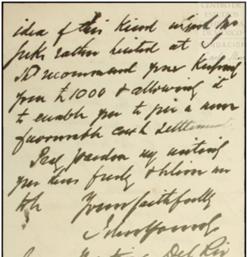 idea of this kind might be
rather hinted at
I recommend your keeping
your £1000 & allowing it
to enable you to give a more
favourable cash settlement
Pray pardon my writing
you thus freely & believe me
Yours faithfully
Del Rio